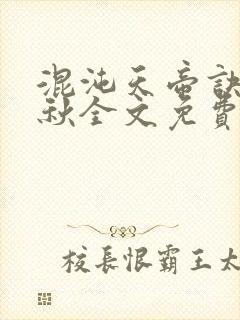 混沌天帝訣
秋全文免費
校長恨霸王太